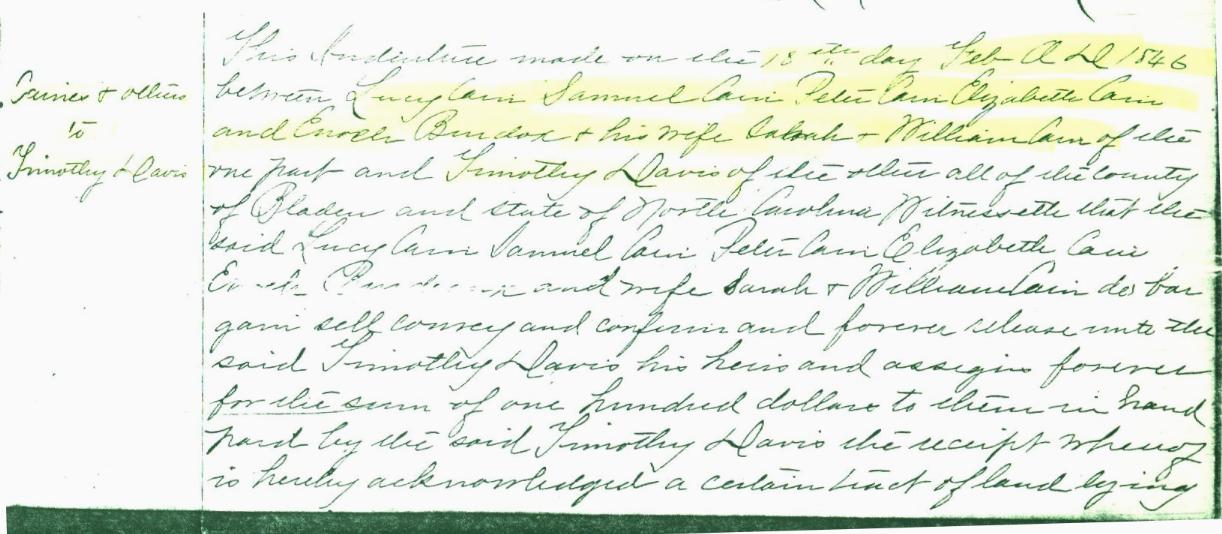 This Indenture made on the 18th day Feb A D 1846
& others
to
Timothy Davis
between Lucy Cain Samuel Cain Peter Cain Elizabeth Cain
and Enoch & his wife Sarah & William Cain of the
one part and Timothy Davis of the other all of the County
of Bladen and state of North Carolina Witnesseth that the
said Lucy Cain Samuel Cain Peter Cain Elizabeth Cain
and wife Sarah & William Cain do bar
gain sell convey and confirm and forever release unto the
said Timothy Davis his heirs and assigns forever
for the sum of one hundred dollars to them in hand
paid by the said Timothy Davis the receipt whereof
is hereby acknowledged a certain tract of land lying